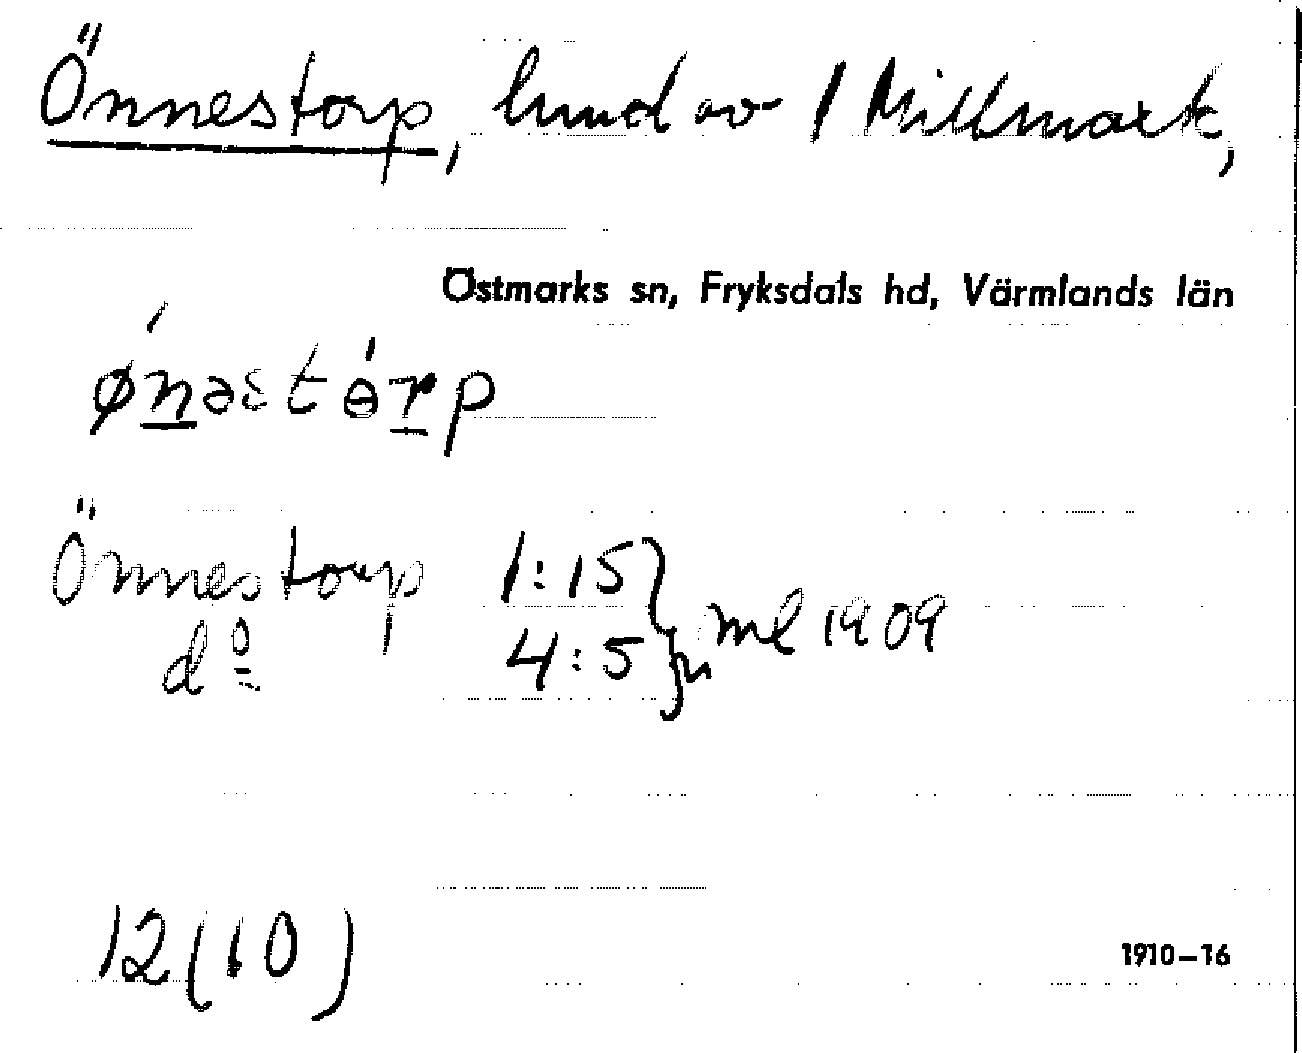 Önnestorp, lmd av 1 Millmark,
Östmarks sn, Fryksdals hd, Värmlands län
ønəstɵrp
Önnestorp 1:15
dº 4:5 } ml 1909
12(10)
1910–16